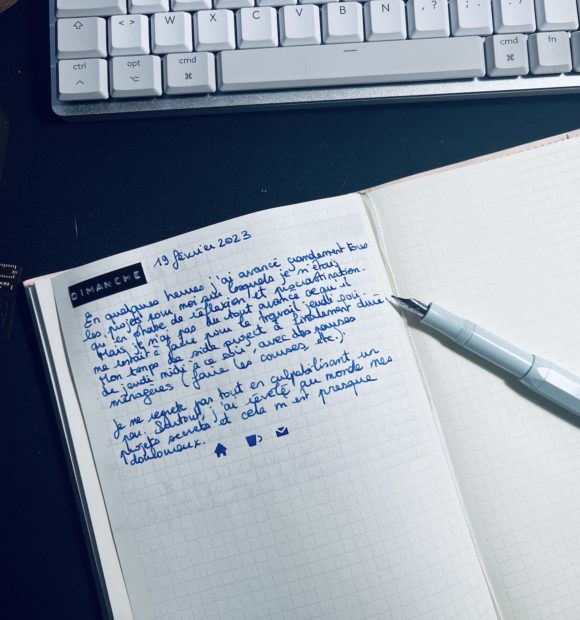 ⇧ < > W X C V B N , ? ; . : /
ctrl opt cmd cmd fn
^ ⌥ ⌘ ⌘
DIMANCHE 19 février 2023
En quelques heures j'ai avancé grandement tous
les projets pour moi sur lesquels je n'étais
qu'en phase de réflexion et procrastination.
Mais je n'ai pas du tout avancé ce qu'il
me restait à faire pour le travail jeudi soir.
Mon temps de side project a finalement duré
de jeudi midi à ce soir. avec des pauses
ménagères (faire les courses, etc).
Je ne regrette pas tout en culpabilisant un
peu. Surtout, j'ai révélé au monde mes
projets secrets et cela m'est presque
douloureux.